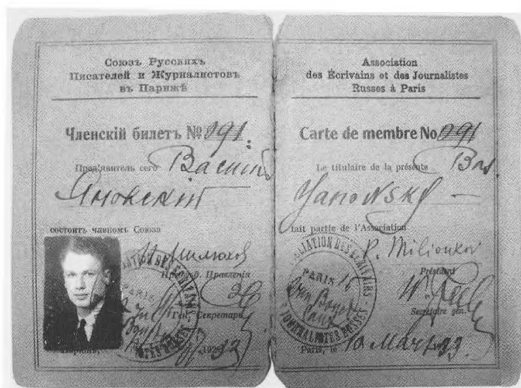 Союзъ Русскихъ
Писателей и Журналистовъ
въ Парижѣ
Членскій билетъ № 091.
Предъявитель сего Василій
Яновскій
состоитъ членомъ Союза
П. Милюков
Предсѣд. Правленія
Ген. Секретарь
Парижъ,
Association
des Écrivains et des Journalistes
Russes à Paris
Carte de membre No 091
Le titulaire de la présente Bas.
Yanovsky
fait partie de l'Association
P. Milioukov
Président
Secrétaire gén.
Paris, le 10 Mars
ASSOCIATION DES ECRIVAINS
PARIS 16
JOURNALISTES RUSSES